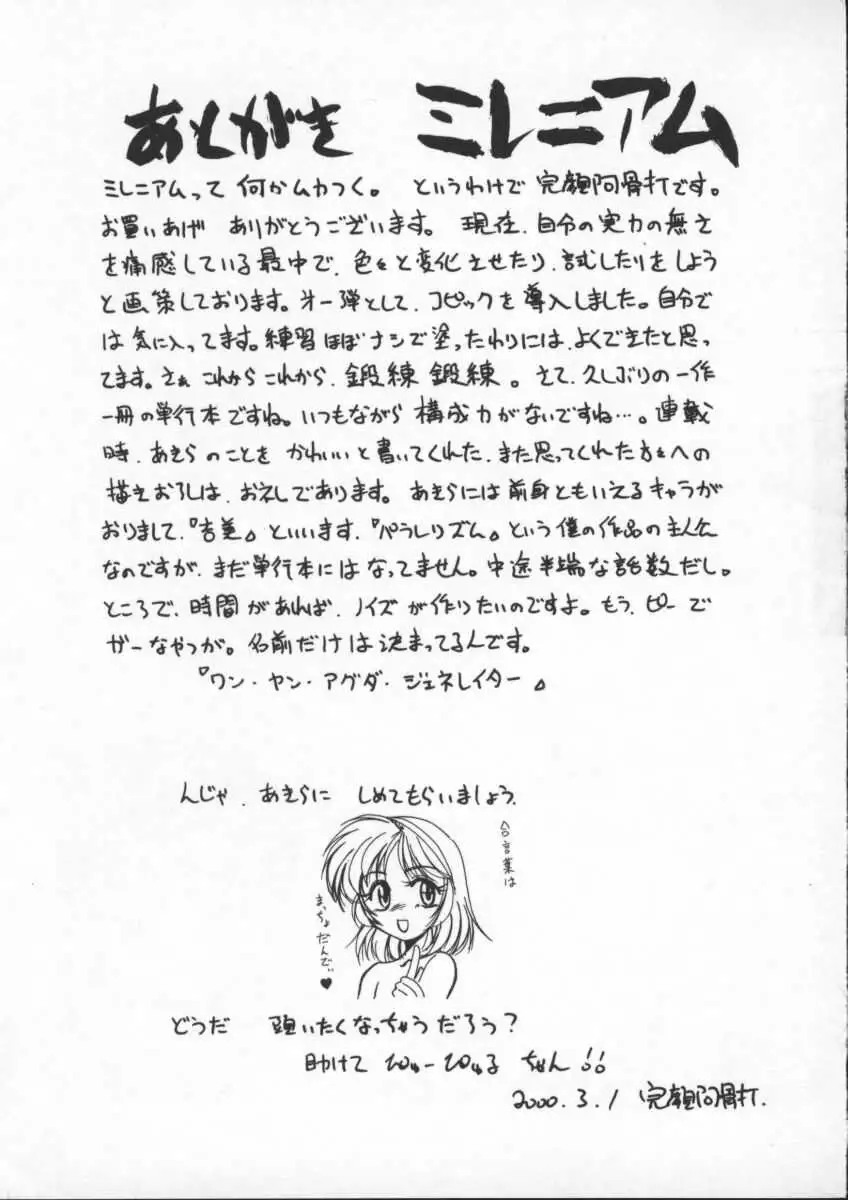 あとがき ミレニアム
ミレニアムって 何かムカつく。 というわけで 完顔阿骨打です。
お買いあげ ありがとうございます。 現在、自分の実力の無さ
を痛感している最中で、色々と変化させたり、試したりをしよう
と画策しております。オ一弾として、コピックを導入しました。自分で
は気に入ってます。練習ほぼナシで塗ったわりには、よくできたと思っ
てます。さぁ これから これから、鍛練 鍛練。さて、久しぶりの一作
一冊の単行本ですね。いつもながら 構成力がないですね…。連載
時、あきらのことを かわいいと書いてくれた、また思ってくれた方々への
描きおろしは、おえしであります。あきらには前身ともいえるキャラが
おりまして、『吉美』といいます、『パラレリズム』という僕の作品の主人公
なのですが、まだ単行本にはなってません。中途半端な話数だし。
ところで、時間があれば、ノイズが作りたいのですよ。もう、ピーで
ガーなやつが。名前だけは決まってるんです。
『ワン・ヤン・アグダ・ジェネレイター』
んじゃ、あきらに しめてもらいましょう、
合言葉は
まっちょだんでぃ♥
どうだ 頭いたくなっちゃうだろう?
助けて ひゅーひゅる ちゃん!!
2000.3.1 完顔阿骨打.